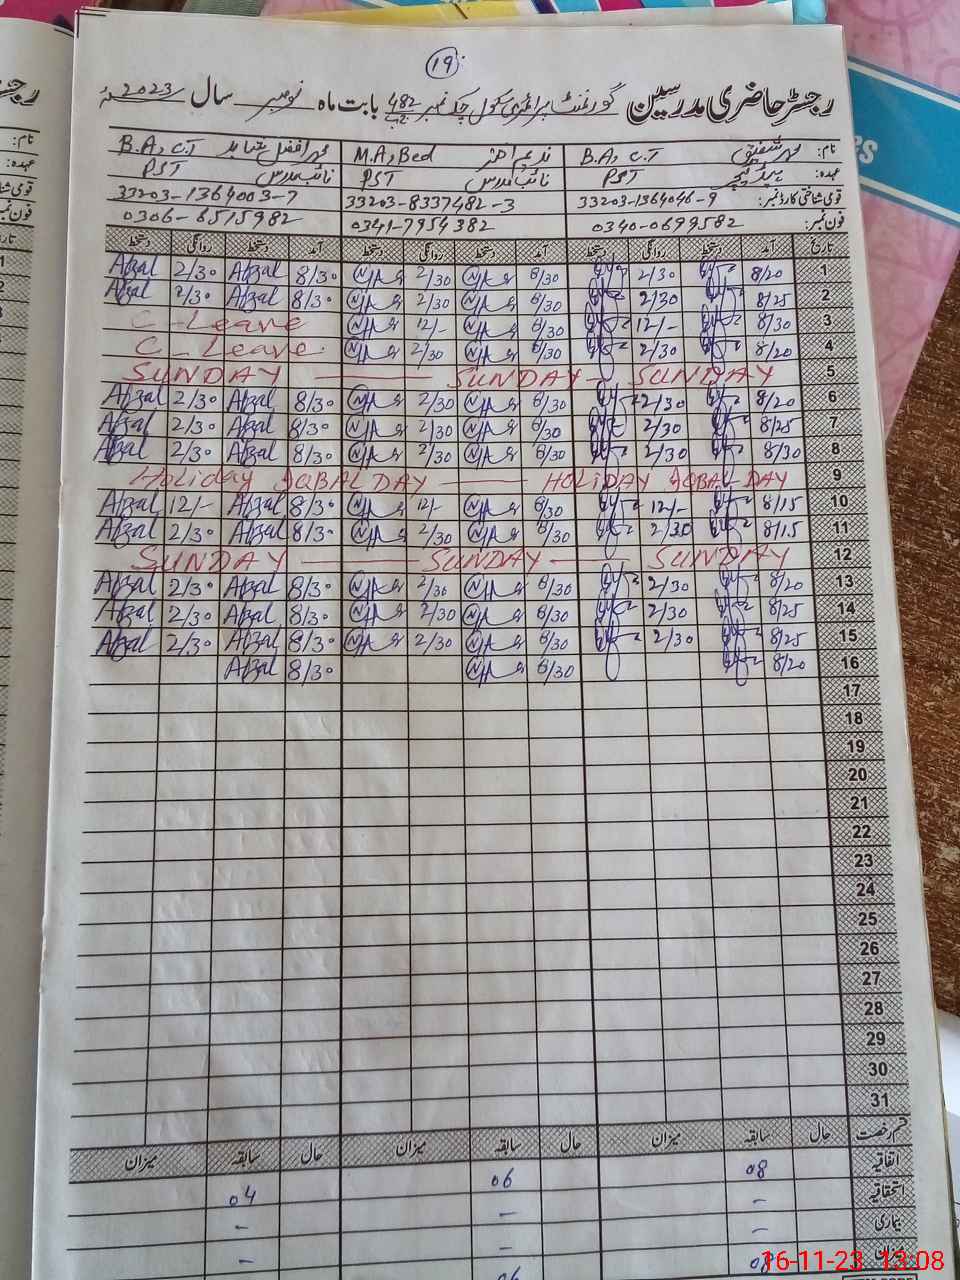 19
رجسٹر حاضری مدرسین گورنمنٹ پرائمری سکول چک نمبر 482 ج ب بابت ماہ نومبر سال 2023ء
نام: محمد شفیق B.A, C.T ندیم اختر M.A, Bed محمد افضل شاہد B.A, C.T
عہدہ: ہیڈ ٹیچر PST نائب مدرس PST نائب مدرس PST
قومی شناختی کارڈ نمبر: 33203-1364046-9 33203-8337482-3 33203-1364003-7
فون نمبر: 0340-0699582 0341-7954382 0306-6515982
تاریخ آمد دستخط روانگی دستخط آمد دستخط روانگی دستخط آمد دستخط روانگی دستخط
1 8/20 2/30 8/30 2/30 8/30 Afzal 2/30 Afzal
2 8/25 2/30 8/30 2/30 8/30 Afzal 2/30 Afzal
3 8/30 12/- 8/30 12/- C-Leave
4 8/20 2/30 8/30 2/30 C-Leave
5 SUNDAY SUNDAY SUNDAY
6 8/20 2/30 8/30 2/30 8/30 Afzal 2/30 Afzal
7 8/25 2/30 8/30 2/30 8/30 Afzal 2/30 Afzal
8 8/30 2/30 8/30 2/30 8/30 Afzal 2/30 Afzal
9 Holiday IQBAL DAY HOLIDAY IQBAL DAY
10 8/15 12/- 8/30 12/- 8/30 Afzal 12/- Afzal
11 8/15 2/30 8/30 2/30 8/30 Afzal 2/30 Afzal
12 SUNDAY SUNDAY SUNDAY
13 8/20 2/30 8/30 2/30 8/30 Afzal 2/30 Afzal
14 8/25 2/30 8/30 2/30 8/30 Afzal 2/30 Afzal
15 8/25 2/30 8/30 2/30 8/30 Afzal 2/30 Afzal
16 8/20 8/30 8/30 Afzal
17
18
19
20
21
22
23
24
25
26
27
28
29
30
31
قسم رخصت حال سابقہ میزان حال سابقہ میزان حال سابقہ میزان
اتفاقیہ 08 06 04
استحقاقیہ - - -
بیماری - - -
میزان 08 06
16-11-23 13:08